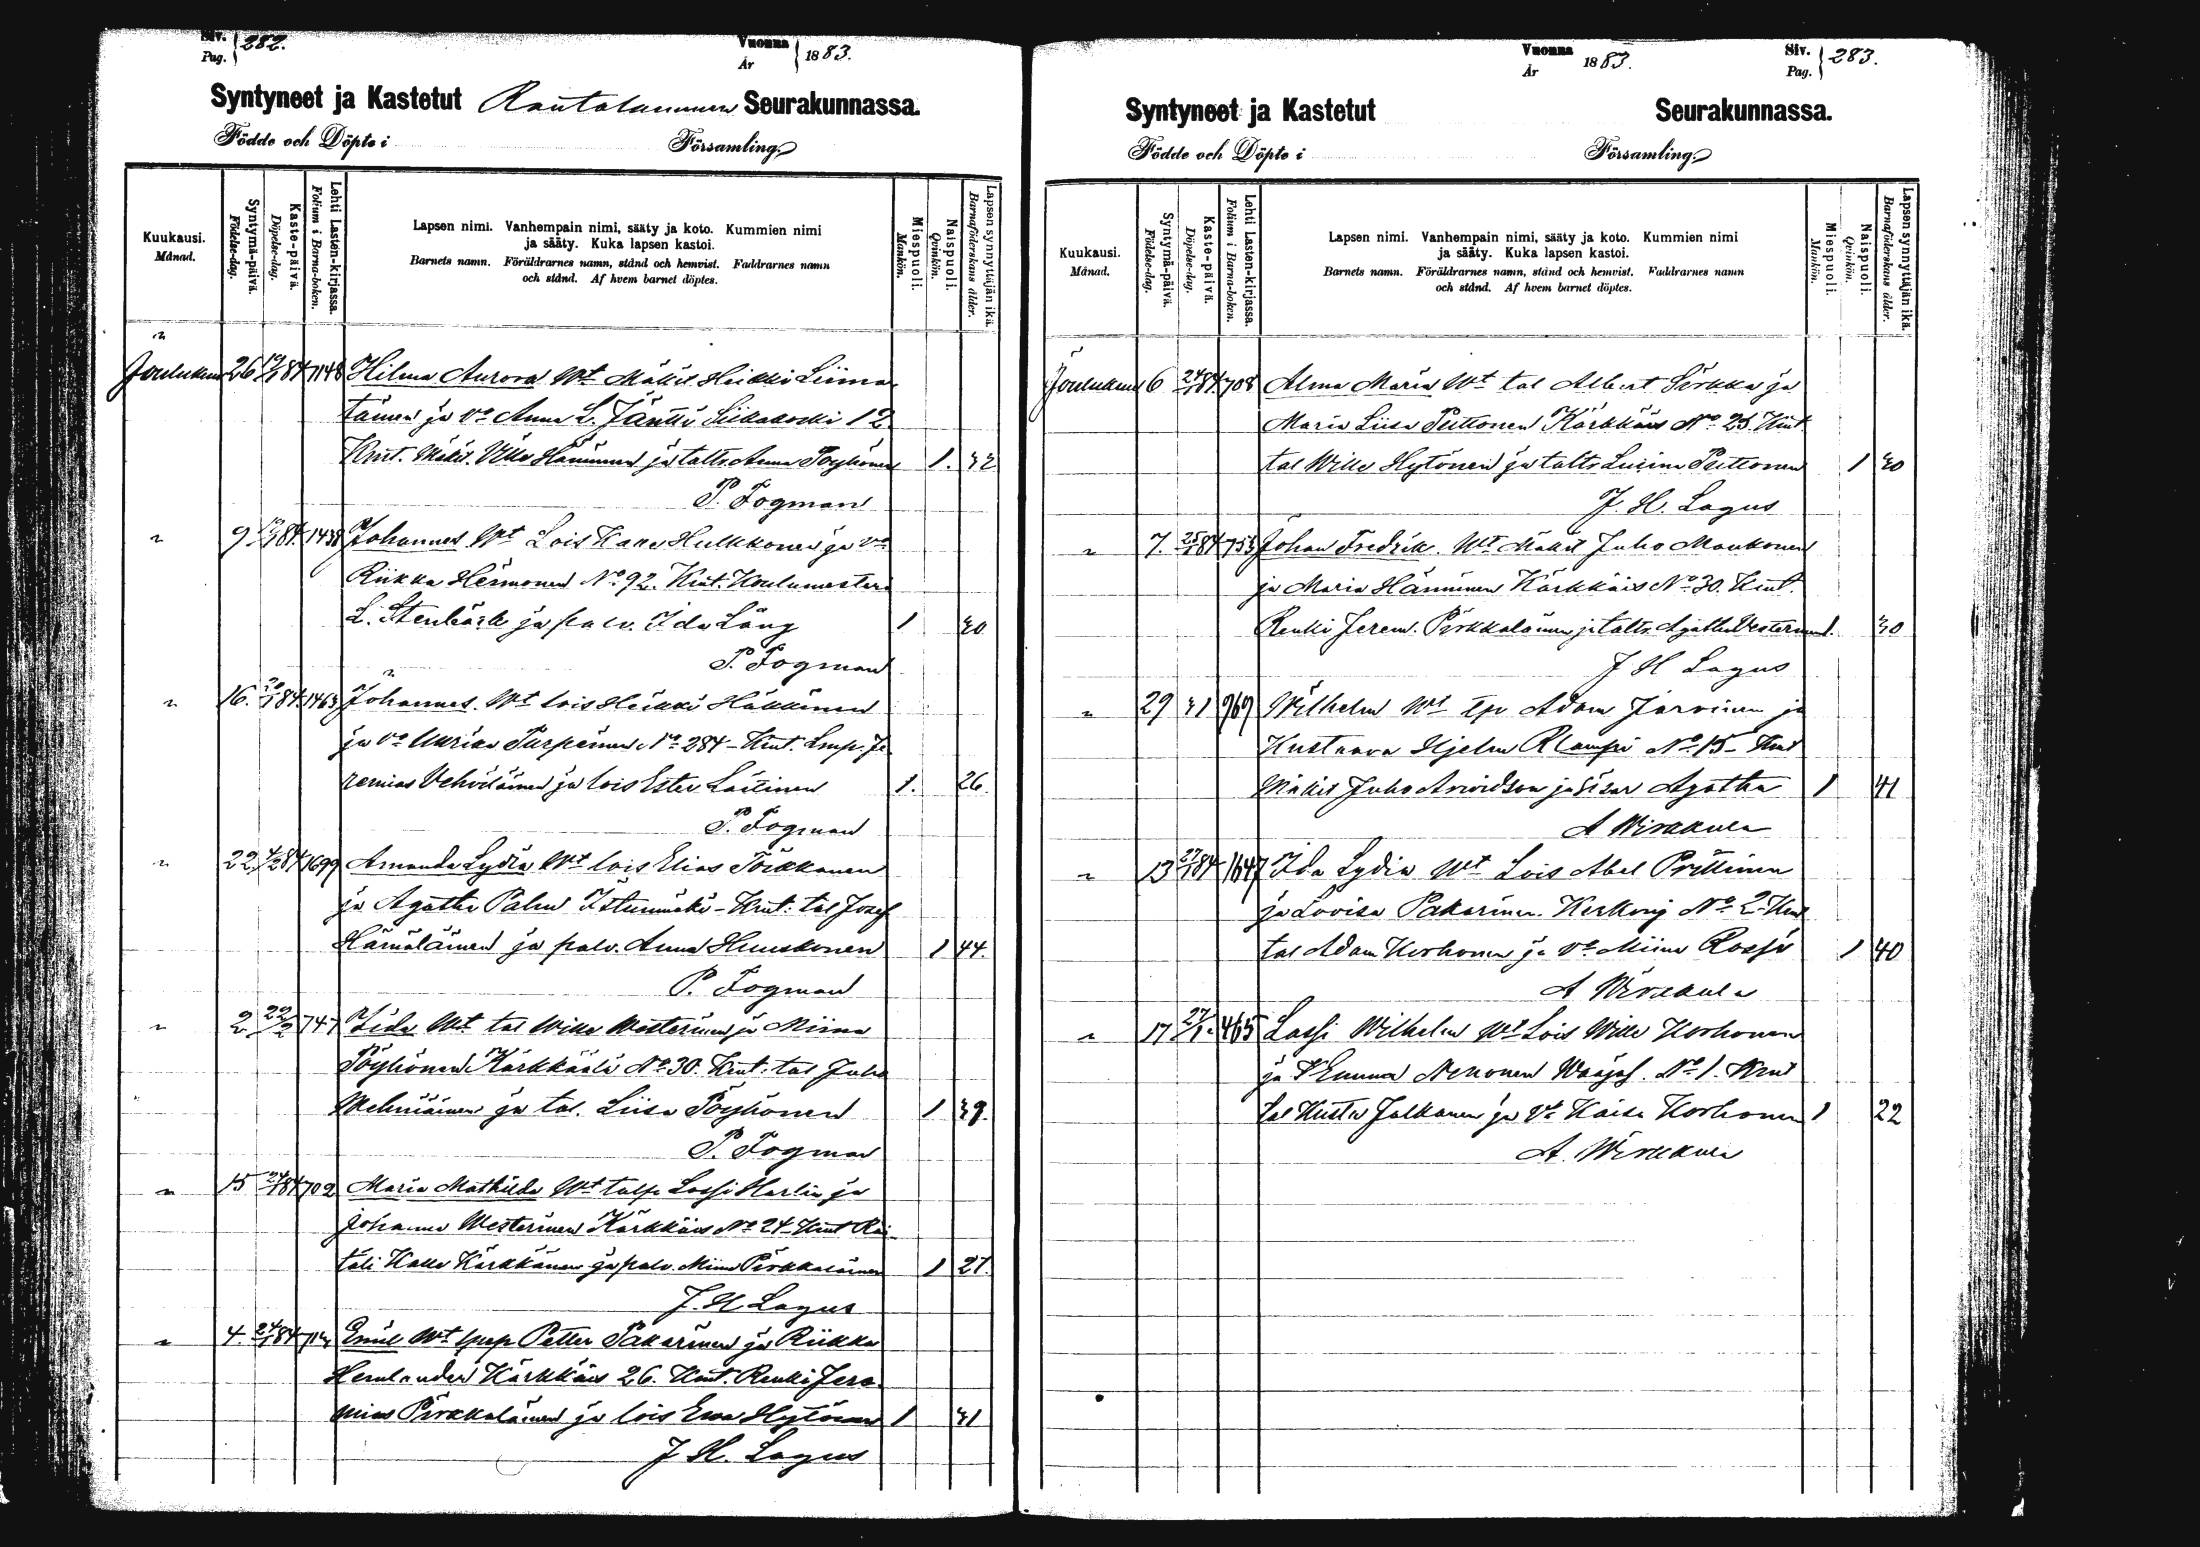 Siv. Pag. 282.
Vuonna År 1883.
Syntyneet ja Kastetut Rautalammen Seurakunnassa.
Födde och Döpte i Församling.
Kuukausi. Månad.
Syntymä-päivä. Födelse-dag.
Kaste-päivä. Döpelse-dag.
Lehti Lasten-kirjassa. Folium i Barna-boken.
Lapsen nimi. Vanhempain nimi, sääty ja koto. Kummien nimi
ja sääty. Kuka lapsen kastoi.
Barnets namn. Föräldrarnes namn, stånd och hemvist. Faddrarnes namn
och stånd. Af hvem barnet döptes.
Miespuoli. Mankön.
Naispuoli. Qvinkön.
Lapsen synnyttäjän ikä. Barnaföderskans ålder.
Joulukuu 26 19/1 84 1148 Hilma Aurora Wt Mäkit Heikki Liima-
tainen ja vo Anna L. Jäntti Siikakoski 12
Kmt. Mäkit. Ukko Hänninen ja taltr. Anna Pöyhönen 1. 32
P. Fogman
" 9 19/1 84. 1438 Johannes Wt Lois Kalle Hulkkonen ja vo
Riikka Heimonen No 92. Kmt. Koulumestari
L. Stenbäck ja palv. Ida Lång 1 30
P. Fogman
" 16. 20/1 84. 1463 Johannes. Wt lois Heikki Häkkinen
ja vo Ulrika Turpeinen No 284 - Kmt. Lmp. Je
remias Vehviläinen ja lois Ester Laitinen 1. 26.
P. Fogman
" 22 4/2 84 1699 Amanda Lydia Wt lois Elias Töikkanen
ja Agatha Palm Istunmäki - Kmt: tal Josef
Hämäläinen ja palv. Anna Huuskonen 1 44.
P. Fogman
" 2 22/2 747 Iida Wt tal Wille Westerinen ja Miina
Pöyhönen Kärkkäälä No 30. Kmt. tal Juho
ja tal. Liisa Pöyhönen 1 39.
P. Fogman
" 15 24/1 84 702 Maria Mathilda Wt talp Lassi Harlin ja
Johanna Westerinen Kärkkäis No 24 - Kmt Rää-
täli Kalle Kärkkäinen ja palv. Miina Pirkkalainen 1 27.
J. H Lagus
" 4. 24/1 84 Emil Wt Petter Pakarinen ja Riikka
Kärkkäis 26. Kmt. Renki Jere-
mias Pirkkalainen ja lois Ewa Hytönen 1 31
J H. Lagus
Vuonna År 1883.
Siv. Pag. 283.
Syntyneet ja Kastetut Seurakunnassa.
Födde och Döpte i Församling.
Kuukausi. Månad.
Syntymä-päivä. Födelse-dag.
Kaste-päivä. Döpelse-dag.
Lehti Lasten-kirjassa. Folium i Barna-boken.
Lapsen nimi. Vanhempain nimi, sääty ja koto. Kummien nimi
ja sääty. Kuka lapsen kastoi.
Barnets namn. Föräldrarnes namn, stånd och hemvist. Faddrarnes namn
och stånd. Af hvem barnet döptes.
Miespuoli. Mankön.
Naispuoli. Qvinkön.
Lapsen synnyttäjän ikä. Barnaföderskans ålder.
Joulukuu 6 24/1 84. 708 Alma Maria Wt tal Albert Sirkka ja
Maria Liisa Puttonen Kärkkäis No 25. Kmt
tal Wille Hytönen ja taltr Puttonen 1 30
J. H. Lagus
" 7. 25/1 84 753 Johan Fredrik. Wt Mäkit Juho Maukonen
ja Maria Hänninen Kärkkäis No 30. Kmt.
Renki Jerem. Pirkkalainen ja taltr. Agatha Westerinen 1. 30
J H Lagus
" 29 31 969 Wilhelm Wt Adam Järvinen ja
Kustaava Hjelm Rlampi No 15 - Kmt
Mäkit Juho Arvidson ja sisar Agatha 1 41
A Wirkkula
" 13 27/1 84 1647 Ida Lydia Wt Lois Abel Prittinen
ja Lovisa Pakarinen. Kerkonj No 2 - Kmt
tal Adam Korhonen ja vo Miina Rossi 1 40
A Wirkkula
" 17 27/1 465 Lassi Wilhelm Wt Lois Wille Korhonen
ja Emma Nenonen Waajas. No 1. Kmt
tal Kusta Jalkanen ja vo Kaisa Korhonen 1 22
A. Wirkkula